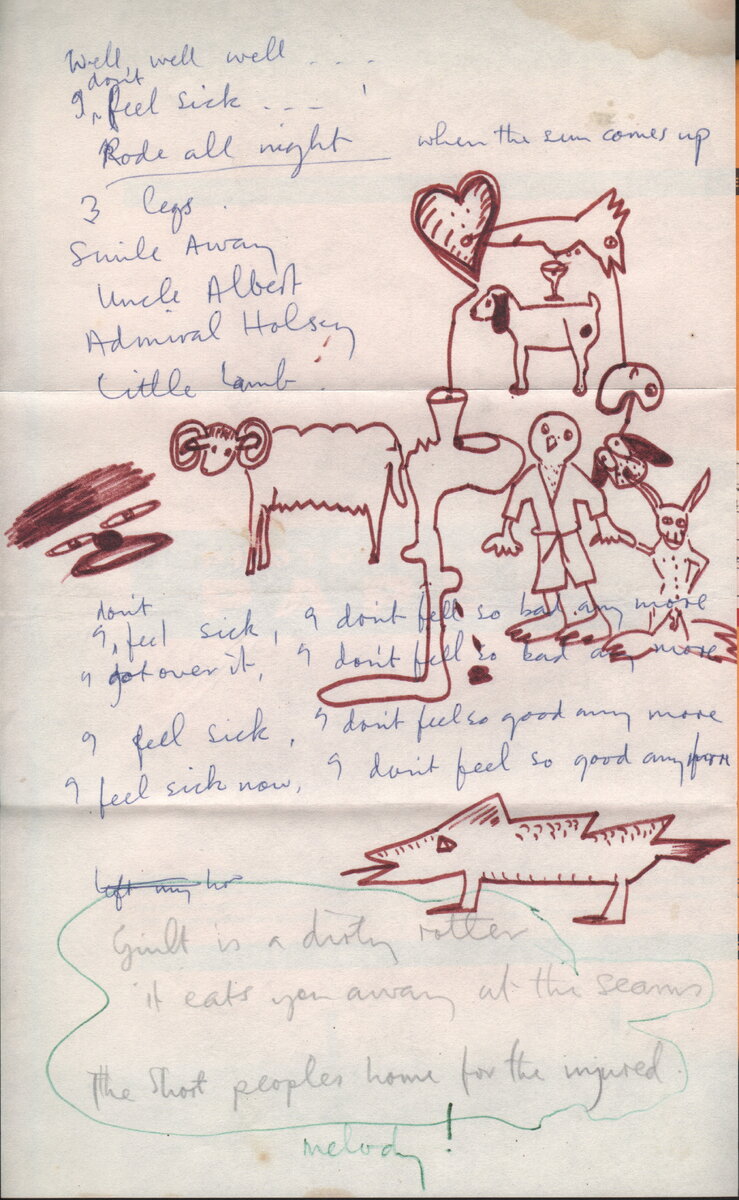 Well, well well . . . .
I don't feel sick . . . . !
Rode all night when the sun comes up
3 legs
Smile Away
Uncle Albert
Admiral Holsey
Little Lamb
I don't feel sick, I don't fell so bad any more
I got over it, I don't fell so bad any more
I feel sick, I don't feel so good any more
I feel sick now, I don't feel so good any more
left my ho
Guilt is a dirty rotter
it eats you away at the seams
The Short peoples home for the injured.
melody!